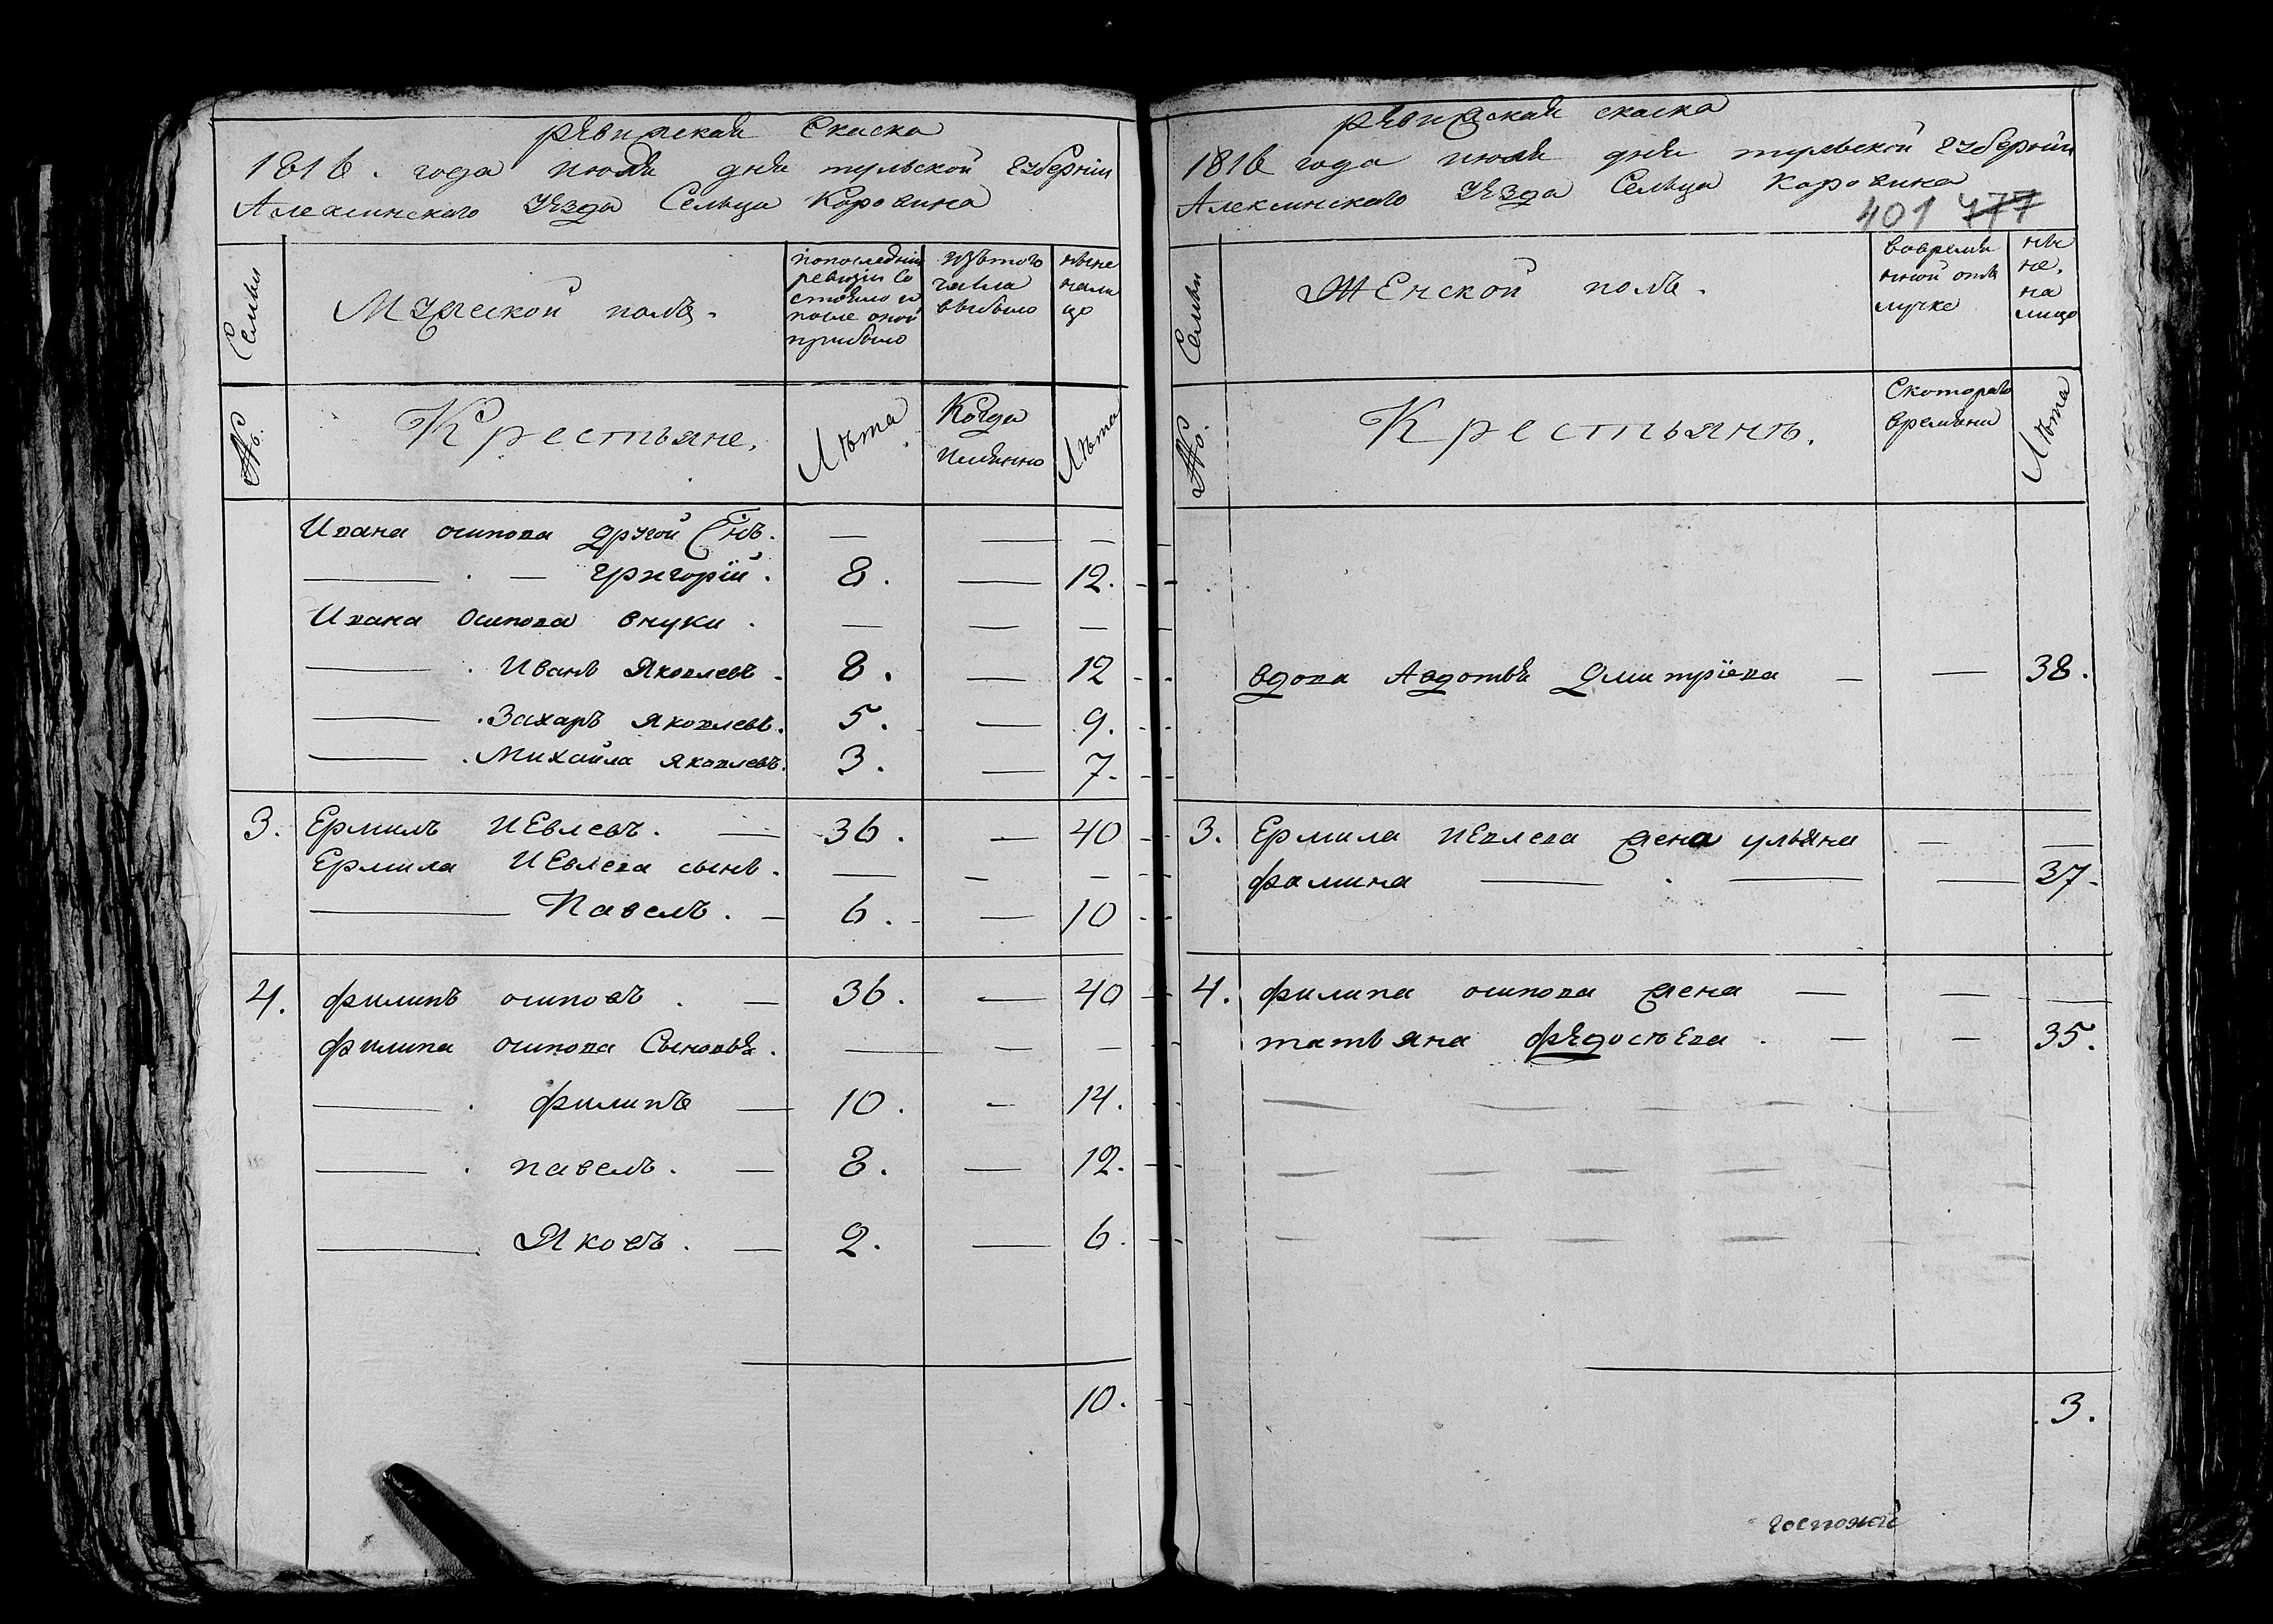 рѣвижская Скаска
1816. года июля дня тульской губерніи
Алексинскаго Уѣзда Сельца Коровина
Семьи
Мужеской полъ.
попоследней ревизіи состояло и после оной прибыло
изътого числа выбыло
ныне нали цо
№.
Крестьяне.
Лѣта
Когда имянно
Лѣта
Ивана осипова другой Снъ. — — —
— . — григорій. 8. — 12.
Ивана Осипова внуки. — — —
— . Иванъ Яковлевъ. 8. — 12
— . Захаръ яковлевъ. 5. — 9.
— . Михайла яковлевъ. 3. — 7.
3. Ермилъ ИЕвлевъ. — 36. — 40
Ермила ИЕвлева сынъ. — — —
— Павелъ. — 6. — 10
4. филипъ осиповъ. — 36. — 40
филипа осипова Сыновья. — — —
— . филипъ — 10. — 14.
— . павелъ. — 8. — 12.
— . Яковъ. — 2. — 6.
10.
рѣвижская скаска
1816 года июля дня тульской губерніи
Алексинскаго Уѣзда Сельца Коровина
401 477
Семьи
ЖЕнской полъ.
вовремян ной отлучке
ны не. на лицо
№.
Крестьянъ.
Скотораго времяни
Лѣта
вдова Авдотья Дмитріева — — 38.
3. Ермила иЕвлева жена ульяна — —
фамина — . — — 37.
4. филипа осипова жена — — —
татьяна фѣдосѣЕва. — — 35.
3.
госпожой